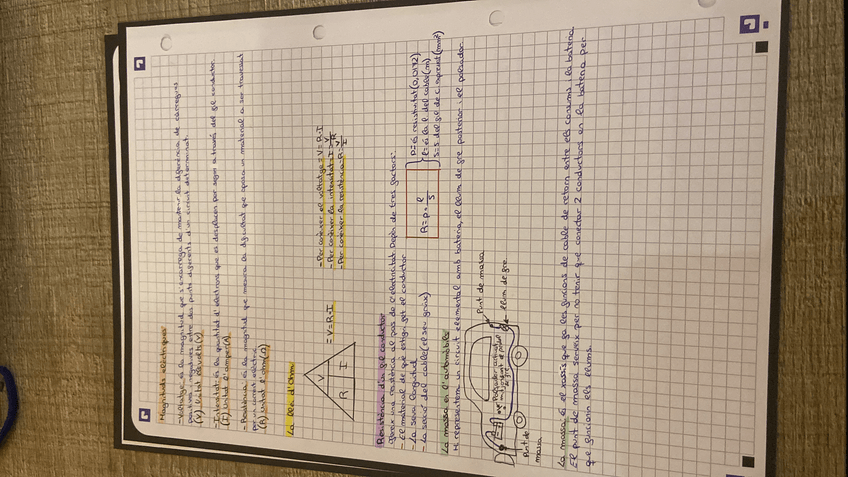 Magnituds elèctriques
-Voltatge: és la magnitud que s'encarrega de mantenir la diferència de carregues
positives i negatives entre dos punts diferents d'un circuit determinat.
(V) Unitat el volt(V)
-Intensitat: és la quantitat d'electrons que es desplacen per segon a través del fil conductor.
(I) Unitat l'amper(A)
-Resistència: és la magnitud que mesura la dificultat que oposa un material a ser travessat
per un corrent elèctric.
(R) Unitat l'ohm(Ω)
La llei d'Ohm:
V
R I
= V=R·I
-Per conèixer el voltatge = V=R·I
-Per conèixer la intensitat= I=V/R
-Per conèixer la resistència= R=V/I
Resistència d'un fil conductor
Ofereix una resistència al pas de l'electricitat. Depèn de tres factors:
-El material de que estigui fet el conductor.
-La seva longitud.
-La secció del cable(el seu gruix)
R=ρ· l/S
ρ=és resistivitat(0,0172)
l=és la l del cable(m)
S=s del fil de c. expressat(mm²)
La massa en l'automòbil:
Hi representem un circuit elemental amb bateria, el llum de fre posterior i el polsador.
Punt de massa
Llum de fre
Polsador
de fre
Punt de
massa
La massa és el xassís que fa les funcions de cable de retorn entre els consums i la bateria.
El punt de massa serveix per no tenir que conectar 2 conductors en la bateria per
que funcionin els llums.